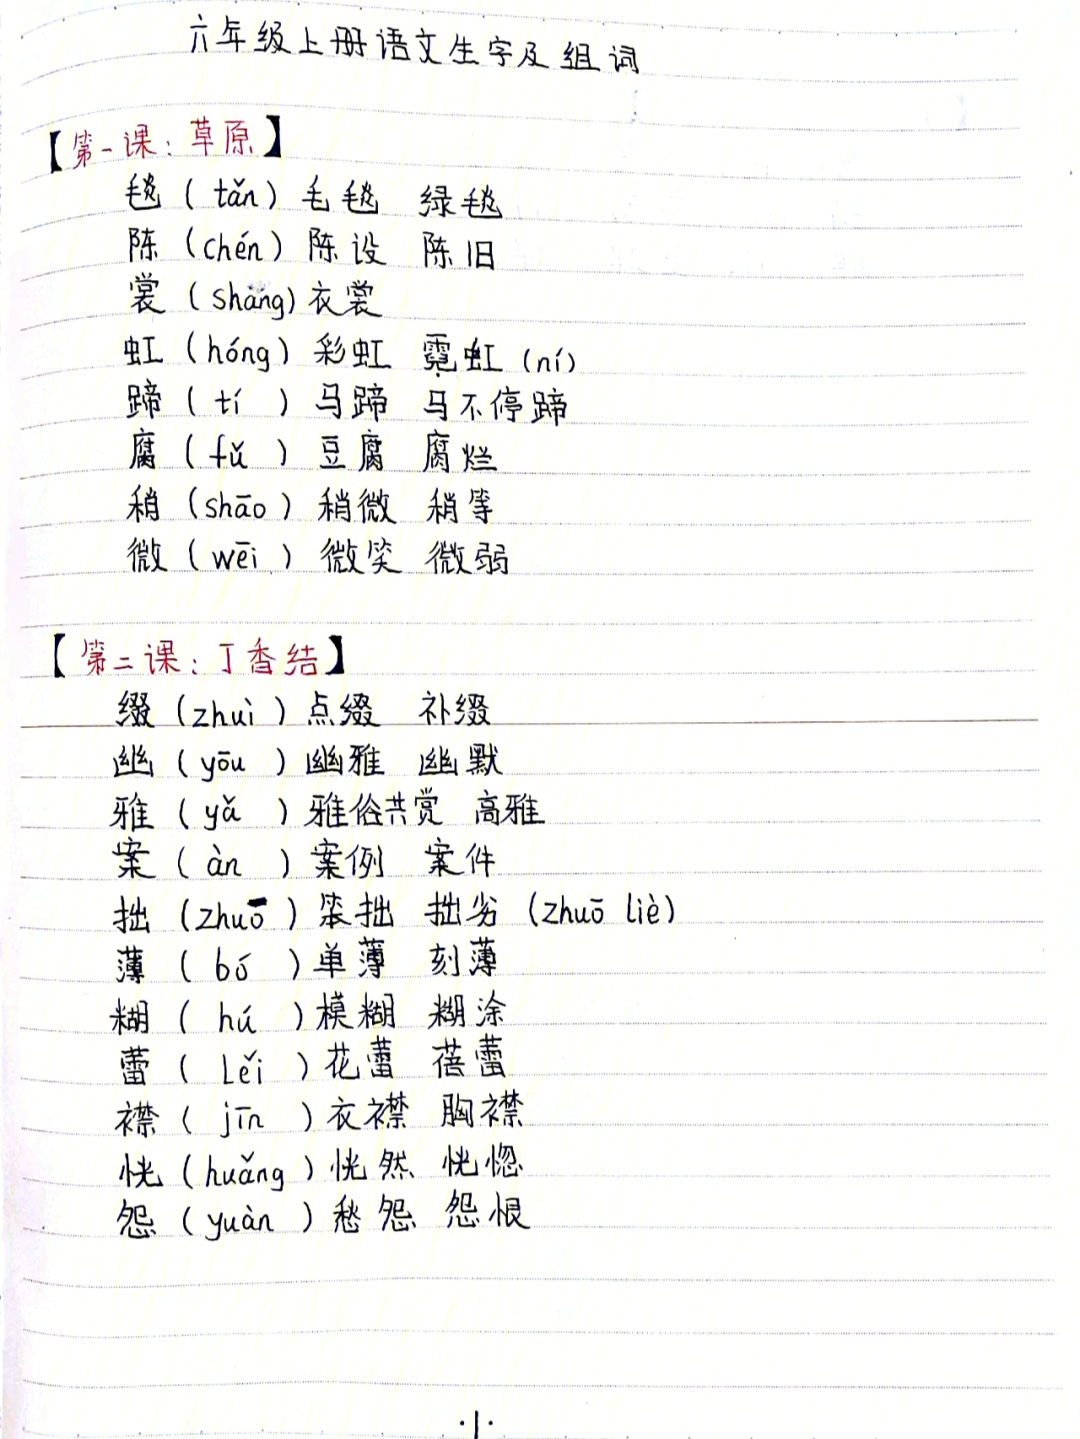 六年级上册语文生字及组词
【第一课：草原】
毯（tǎn）毛毯 绿毯
陈（chén）陈设 陈旧
裳（shang）衣裳
虹（hóng）彩虹 霓虹（ní）
蹄（tí）马蹄 马不停蹄
腐（fǔ）豆腐 腐烂
稍（shāo）稍微 稍等
微（wēi）微笑 微弱
【第二课：丁香结】
缀（zhuì）点缀 补缀
幽（yōu）幽雅 幽默
雅（yǎ）雅俗共赏 高雅
案（àn）案例 案件
拙（zhuō）笨拙 拙劣（zhuō liè）
薄（bó）单薄 刻薄
糊（hú）模糊 糊涂
蕾（lěi）花蕾 蓓蕾
襟（jīn）衣襟 胸襟
恍（huǎng）恍然 恍惚
怨（yuàn）愁怨 怨恨
·1·